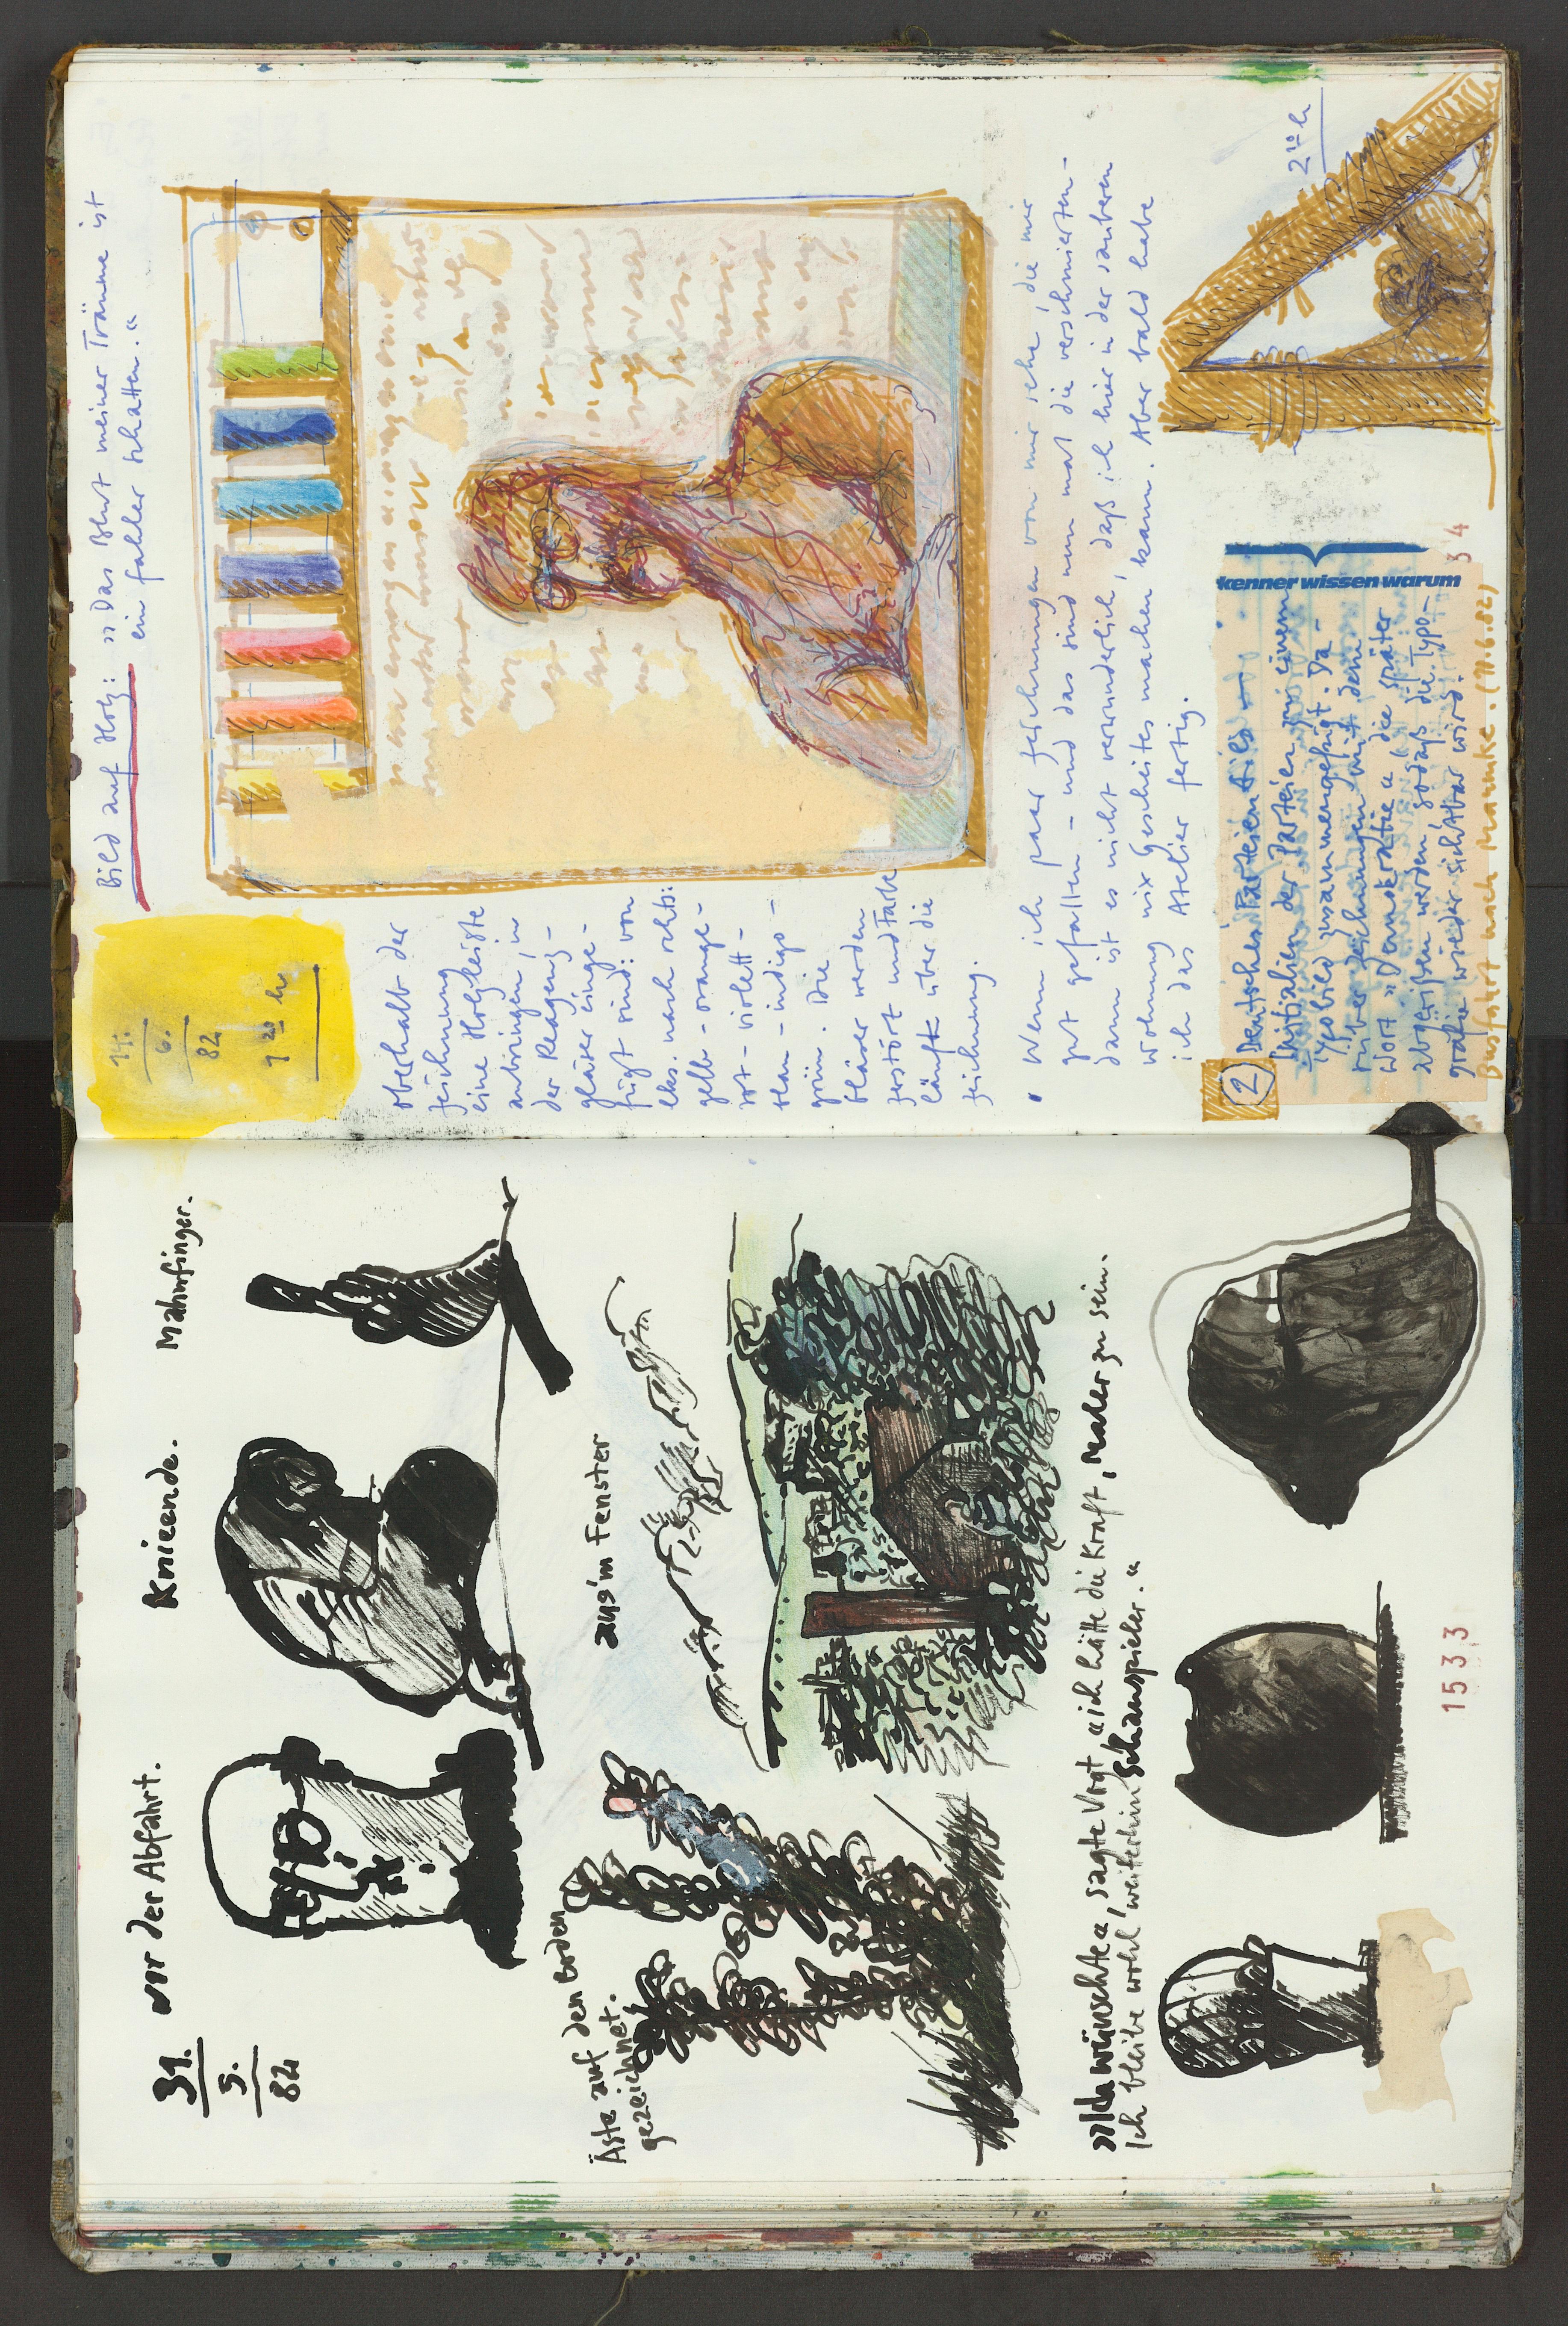 31.
5.
82
vor der Abfahrt.
Knieende.
Mahnfinger.
Äste auf den Boden
gezeichnet.
aus'm Fenster
»Ich wünschte«, sagte Vogt »ich hätte die Kraft, Maler zu sein.
Ich bleibe wohl weiterhin Schauspieler.«
1533
14.
6.
82
9 20 h
Bild auf Holz: »Das Blut meiner Träume ist
ein fahler Schatten.«
oberhalb der
Zeichnung
eine Holzleiste
anbringen, in
der Reagenz-
gläser einge-
fügt sind: von
lks. nach rchts:
gelb - orange -
rot - violett -
blau - indigo -
grün. Die
Gläser werden
zerstört und Farbe
läuft über die
Zeichnung.
• Wenn ich paar Zeichnungen von mir sehe, die mir
gut gefallen - und das sind nun mal die verschmierten -
dann ist es nicht verwunderlich, daß ich hier in der sauberen
Wohnung nix Gescheites machen kann. Aber bald habe
ich das Atelier fertig.
2 Deutsches Parteienbild
Initialien der Parteien zu einem
Typobild zusammengefügt. Da-
rüber Zeichnungen mit dem
Wort »Demokratie« die später
abgerißen werden sodaß die Typo-
grafie wieder sichtbar wird.
Busfahrt nach
(11.6.82)
kenner wissen warum
34
2 10 h